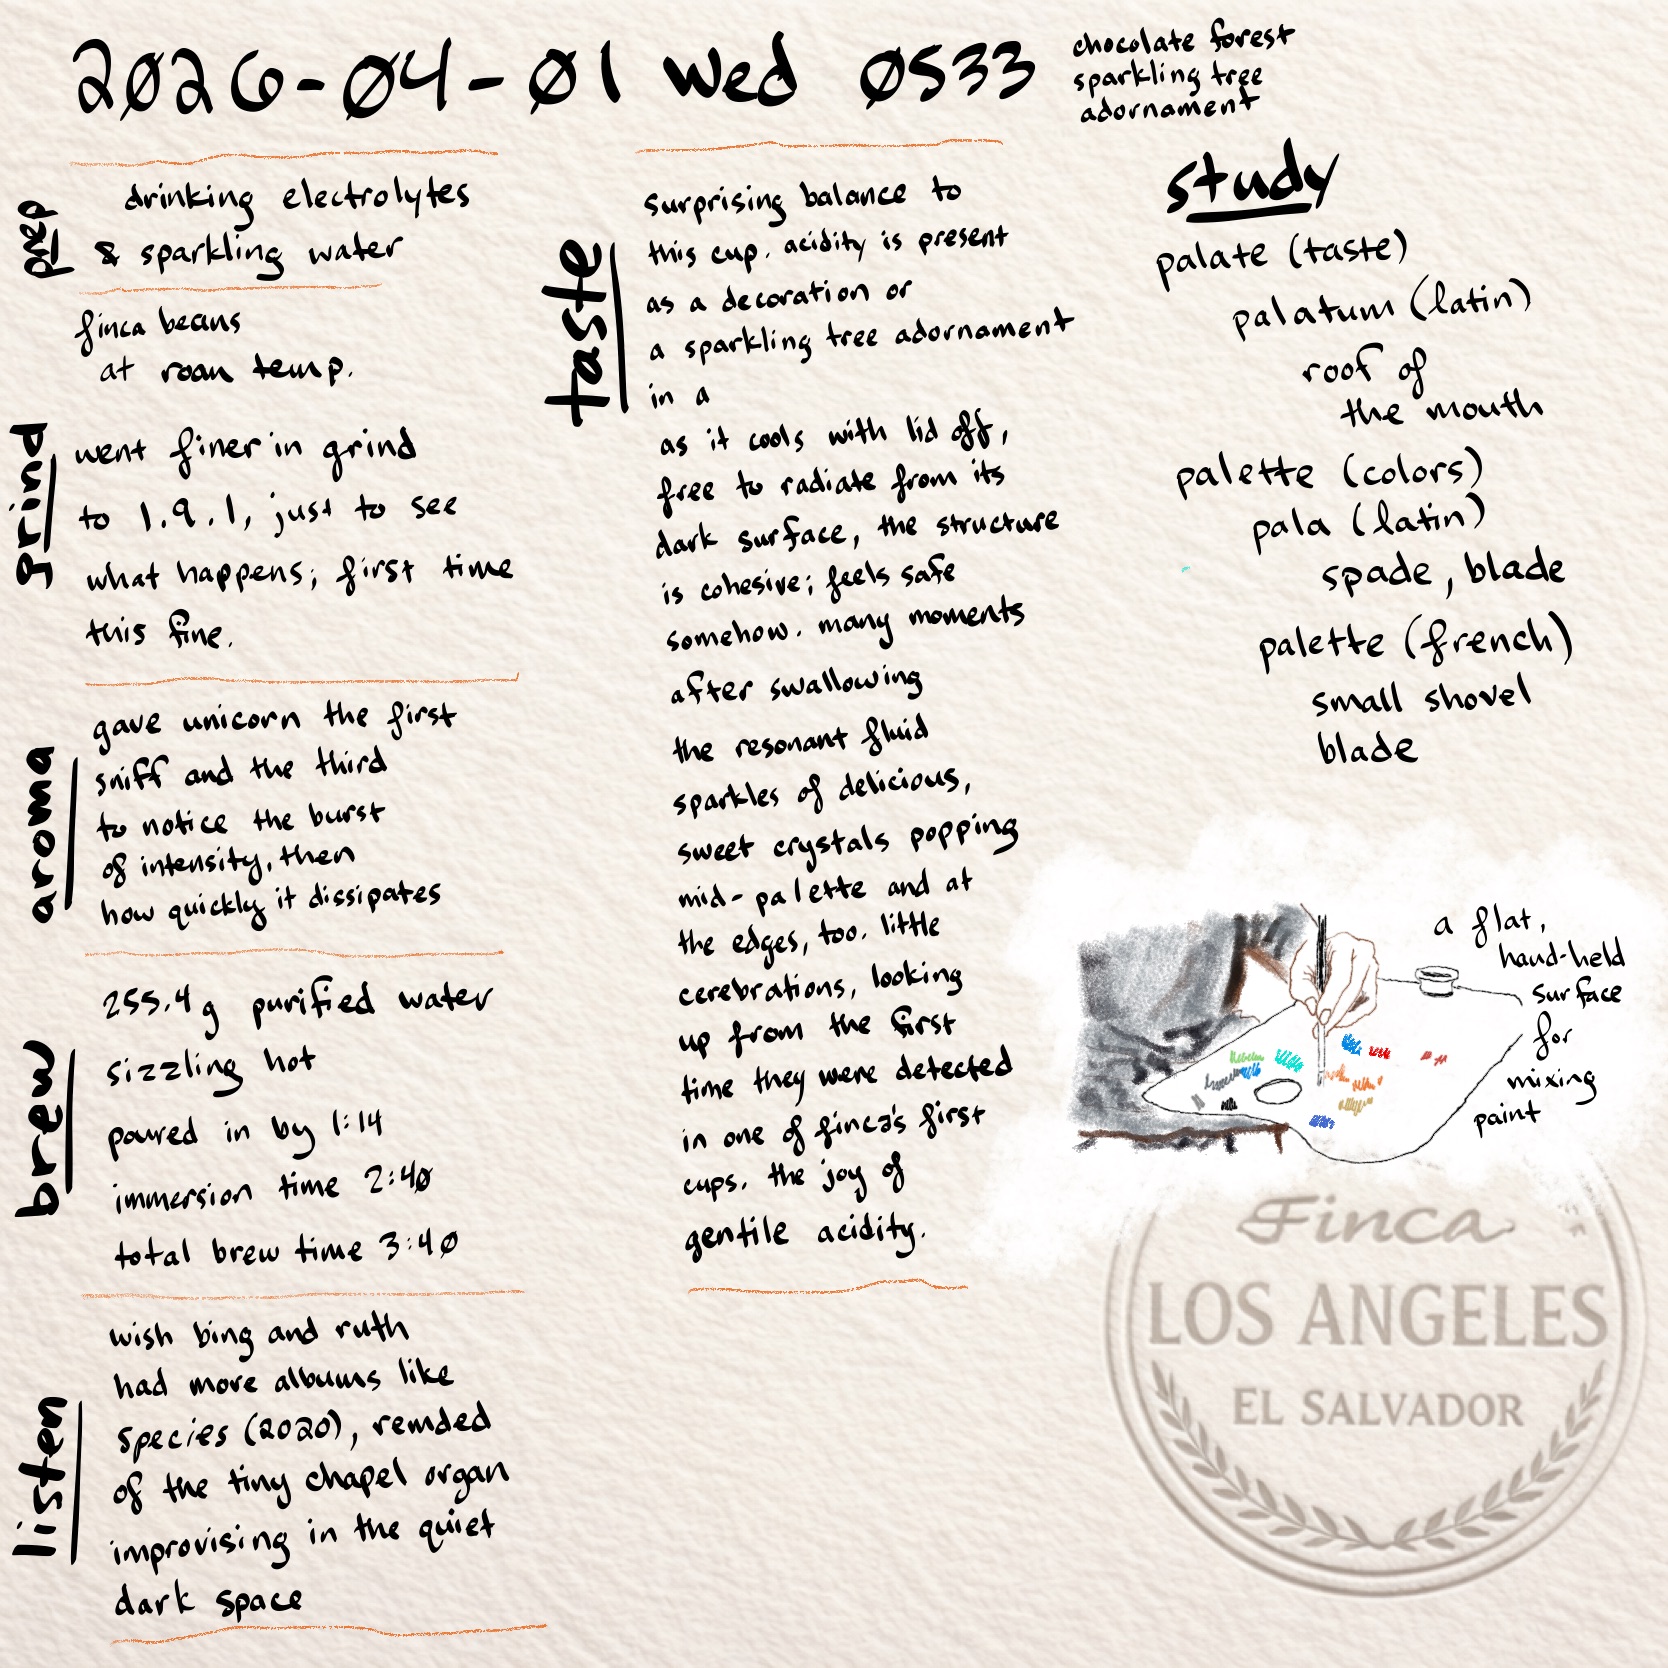 2026-04-01 Wed 0533
chocolate forest
sparkling tree
adornament
prep
drinking electrolytes
& sparkling water
finca beans
at room temp.
grind
went finer in grind
to 1.9.1, just to see
what happens; first time
this fine.
aroma
gave unicorn the first
sniff and the third
to notice the burst
of intensity, then
how quickly it dissipates
brew
255.4g purified water
sizzling hot
poured in by 1:14
immersion time 2:40
total brew time 3:40
listen
wish bing and ruth
had more albums like
species (2020), remded
of the tiny chapel organ
improvising in the quiet
dark space
taste
surprising balance to
this cup. acidity is present
as a decoration or
a sparkling tree adornament
in a
as it cools with lid off,
free to radiate from its
dark surface, the structure
is cohesive; feels safe
somehow. many moments
after swallowing
the resonant fluid
sparkles of delicious,
sweet crystals popping
mid-palette and at
the edges, too. little
cerebrations, looking
up from the first
time they were detected
in one of finca's first
cups. the joy of
gentile acidity.
study
palate (taste)
palatum (latin)
roof of
the mouth
palette (colors)
pala (latin)
spade, blade
palette (french)
small shovel
blade
a flat,
hand-held
surface
for
mixing
paint
Finca
LOS ANGELES
EL SALVADOR